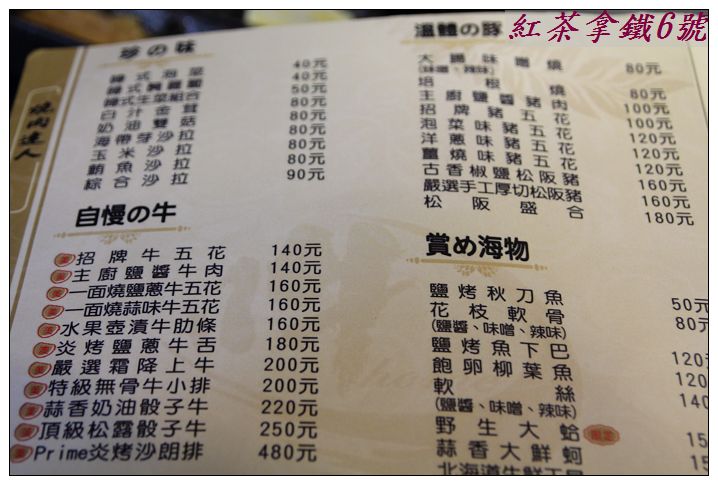 紅茶拿鐵6號
燒肉達人
珍の味
韓式泡菜 40元
40元
韓式生菜組合 50元
白汁金茸 80元
奶油雙菇 80元
海帶芽沙拉 80元
玉米沙拉 80元
鮪魚沙拉 80元
綜合沙拉 90元
自慢の牛
招牌牛五花 140元
主廚鹽醬牛肉 140元
一面燒鹽蔥牛五花 160元
一面燒蒜味牛五花 160元
水果壺漬牛肋條 160元
炎烤鹽蔥牛舌 180元
嚴選霜降上牛 200元
特級無骨牛小排 200元
蒜香奶油骰子牛 220元
頂級松露骰子牛 250元
Prime炎烤沙朗排 480元
溫體の豚
大腸味噌燒 80元
(味噌、辣味)
培根燒 80元
主廚鹽醬豬肉 100元
招牌豬五花 100元
泡菜味豬五花 120元
洋蔥味豬五花 120元
薑燒味豬五花 120元
古香椒鹽松阪豬 160元
嚴選手工厚切松阪豬 160元
松阪盛合 180元
賞め海物
鹽烤秋刀魚 50元
花枝軟骨 80元
(鹽醬、味噌、辣味)
鹽烤魚下巴 120
飽卵柳葉魚 120
軟絲 140
(鹽醬、味噌、辣味)
野生大蛤 限定 15
蒜香大鮮蚵 15
北海道生鮮干貝